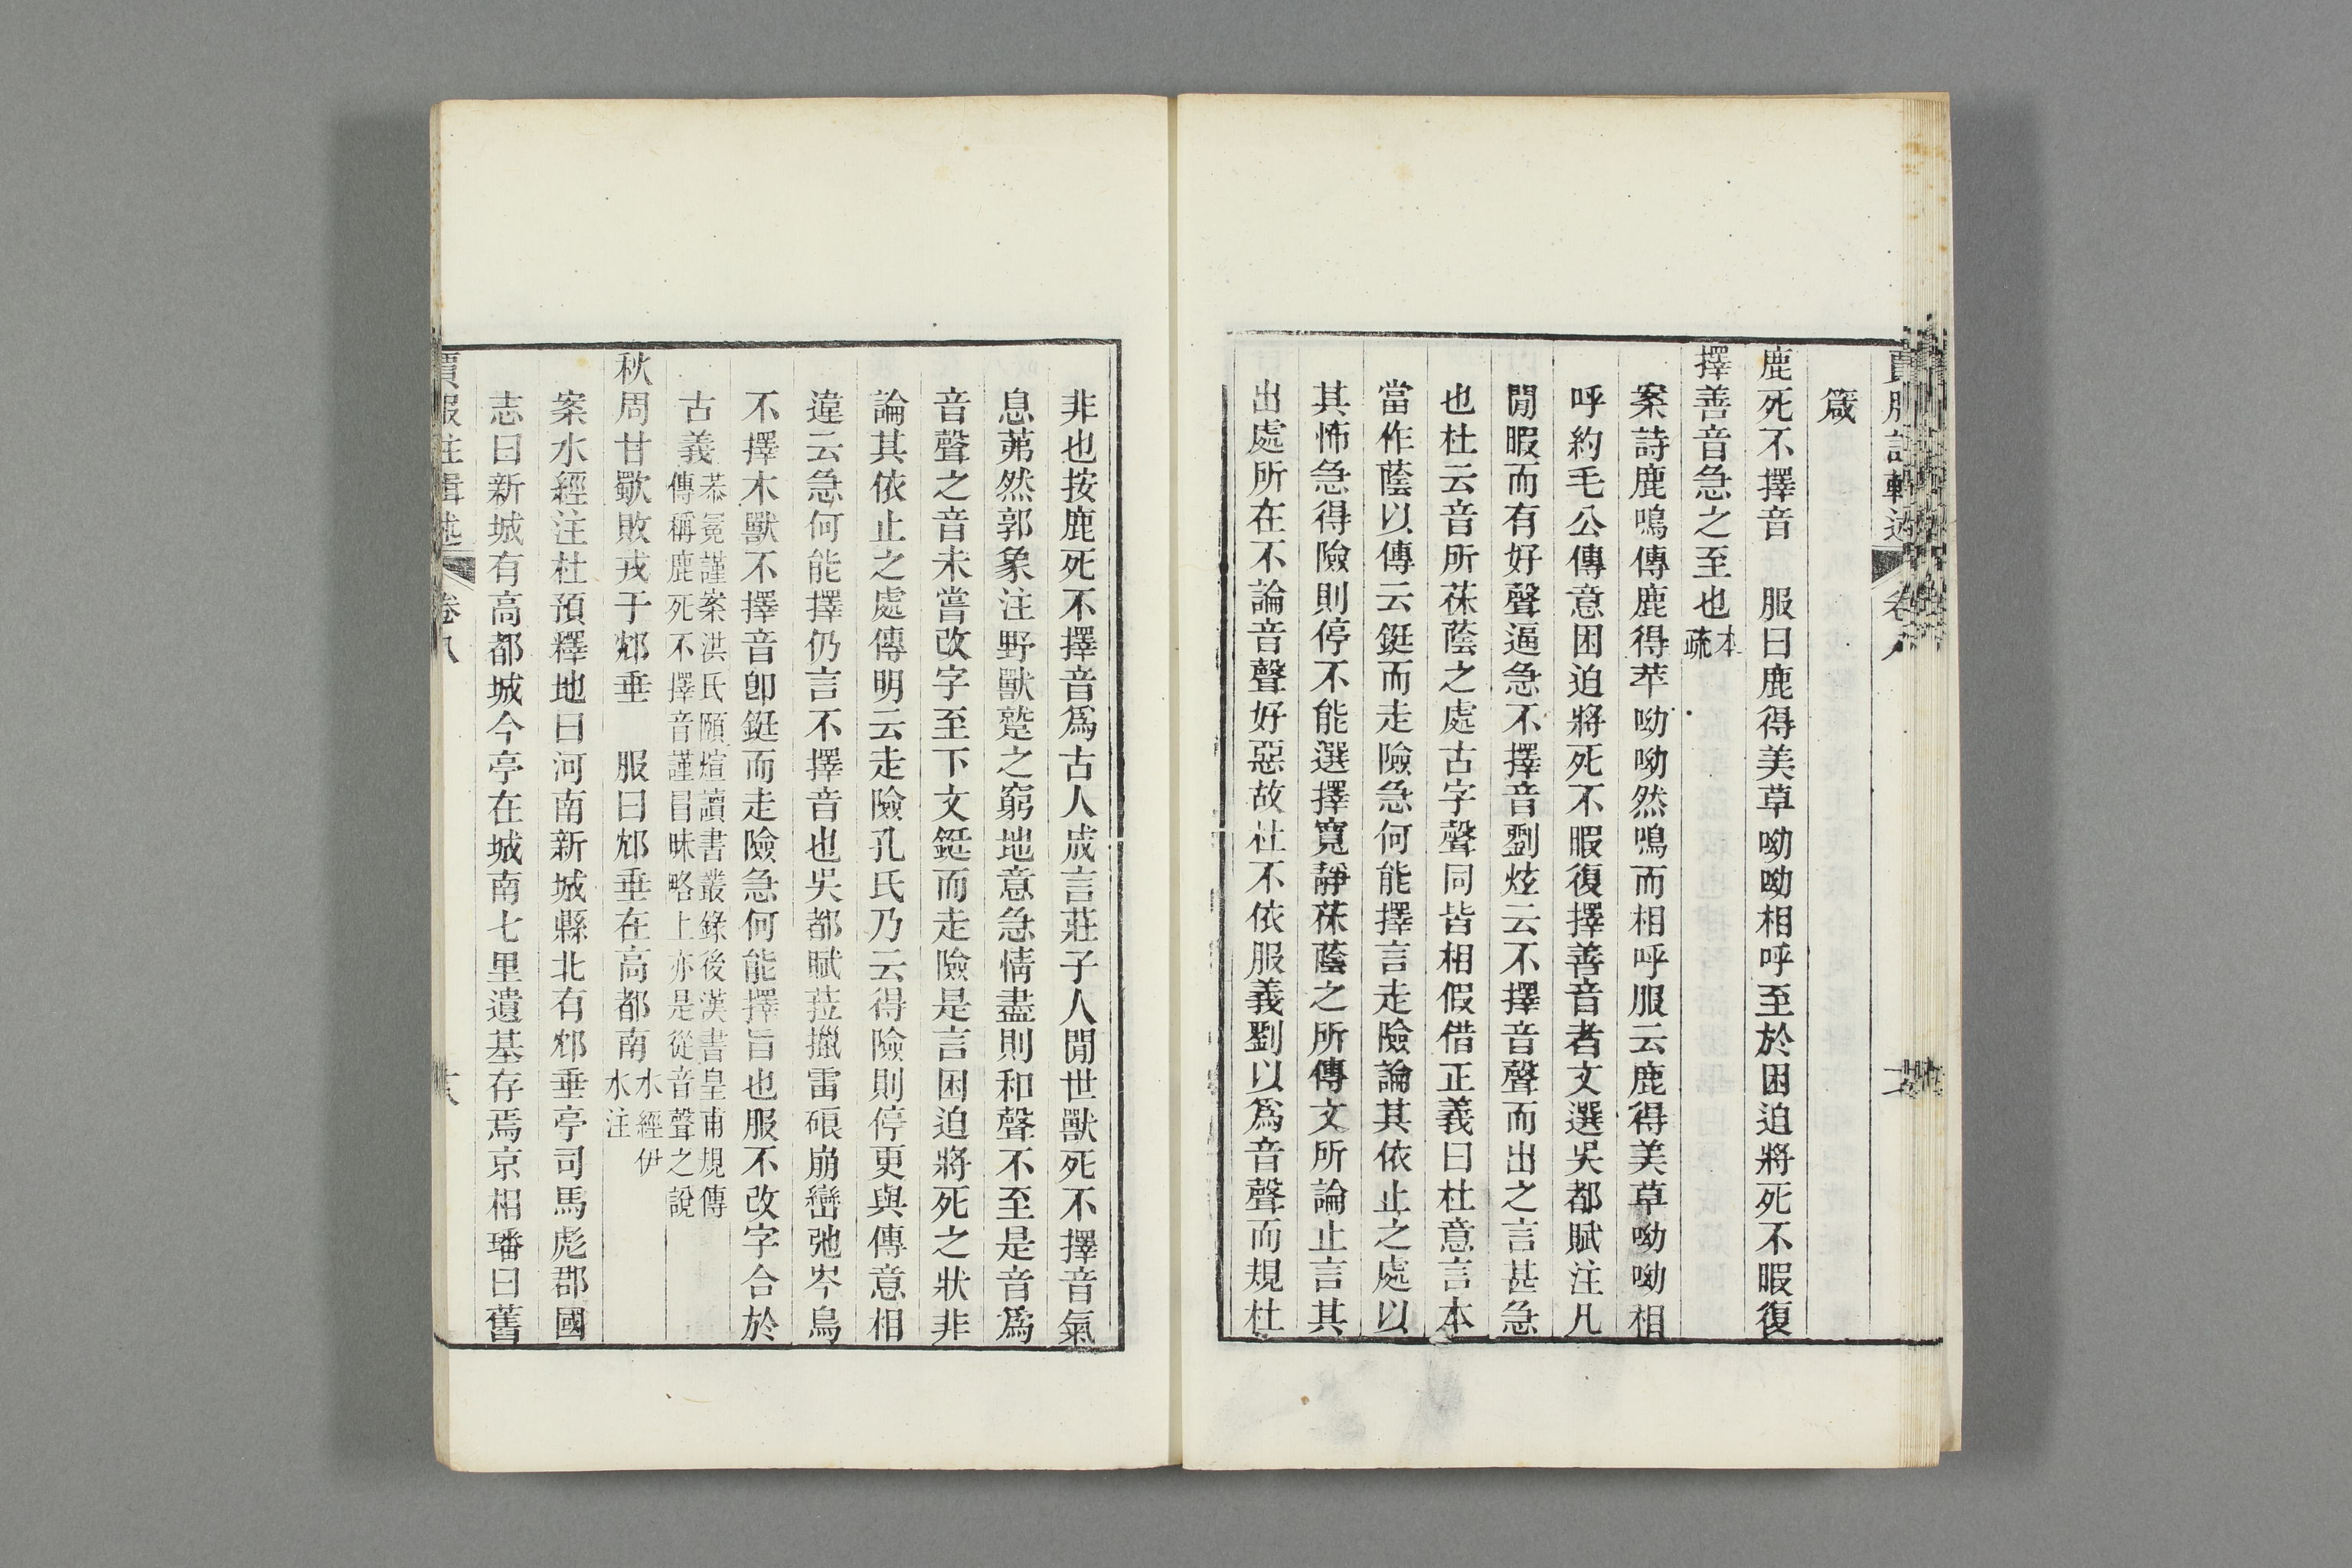 箴
鹿死不擇音　服曰鹿得美草呦呦相呼至於困迫將死不暇復
擇善音急之至也本
疏
案詩鹿鳴傳鹿得苹呦呦然鳴而相呼服云鹿得美草呦呦相
呼約毛公傳意困迫將死不暇復擇善音者文選吳都賦注凡
閒暇而有好聲逼急不擇音劉炫云不擇音聲而出之言甚急
也杜云音所茠蔭之處古字聲同皆相假借正義曰杜意言本
當作蔭以傳云鋌而走險急何能擇言走險論其依止之處以
其怖急得險則停不能選擇寬靜茠蔭之所傳文所論止言其
出處所在不論音聲好惡故杜不依服義劉以爲音聲而規杜
非也按鹿死不擇音爲古人成言莊子人閒世獸死不擇音氣
息茀然郭象注野獸蹵之窮地意急情盡則和聲不至是音爲
音聲之音未嘗改字至下文鋌而走險是言困迫將死之狀非
論其依止之處傳明云走險孔氏乃云得險則停更與傳意相
違云急何能擇仍言不擇音也吳都賦菈擸雷硠崩巒弛岑鳥
不擇木獸不擇音卽鋌而走險急何能擇旨也服不改字合於
古義恭冕謹案洪氏頤煊讀書叢錄後漢書皇甫規傳
傳稱鹿死不擇音謹冒昧略上亦是從音聲之說
秋周甘歜敗戎于邥垂　服曰邥垂在高都南水經伊
水注
案水經注杜預釋地曰河南新城縣北有邥垂亭司馬彪郡國
志曰新城有高都城今亭在城南七里遺基存焉京相璠曰舊
賈服注輯述　卷八